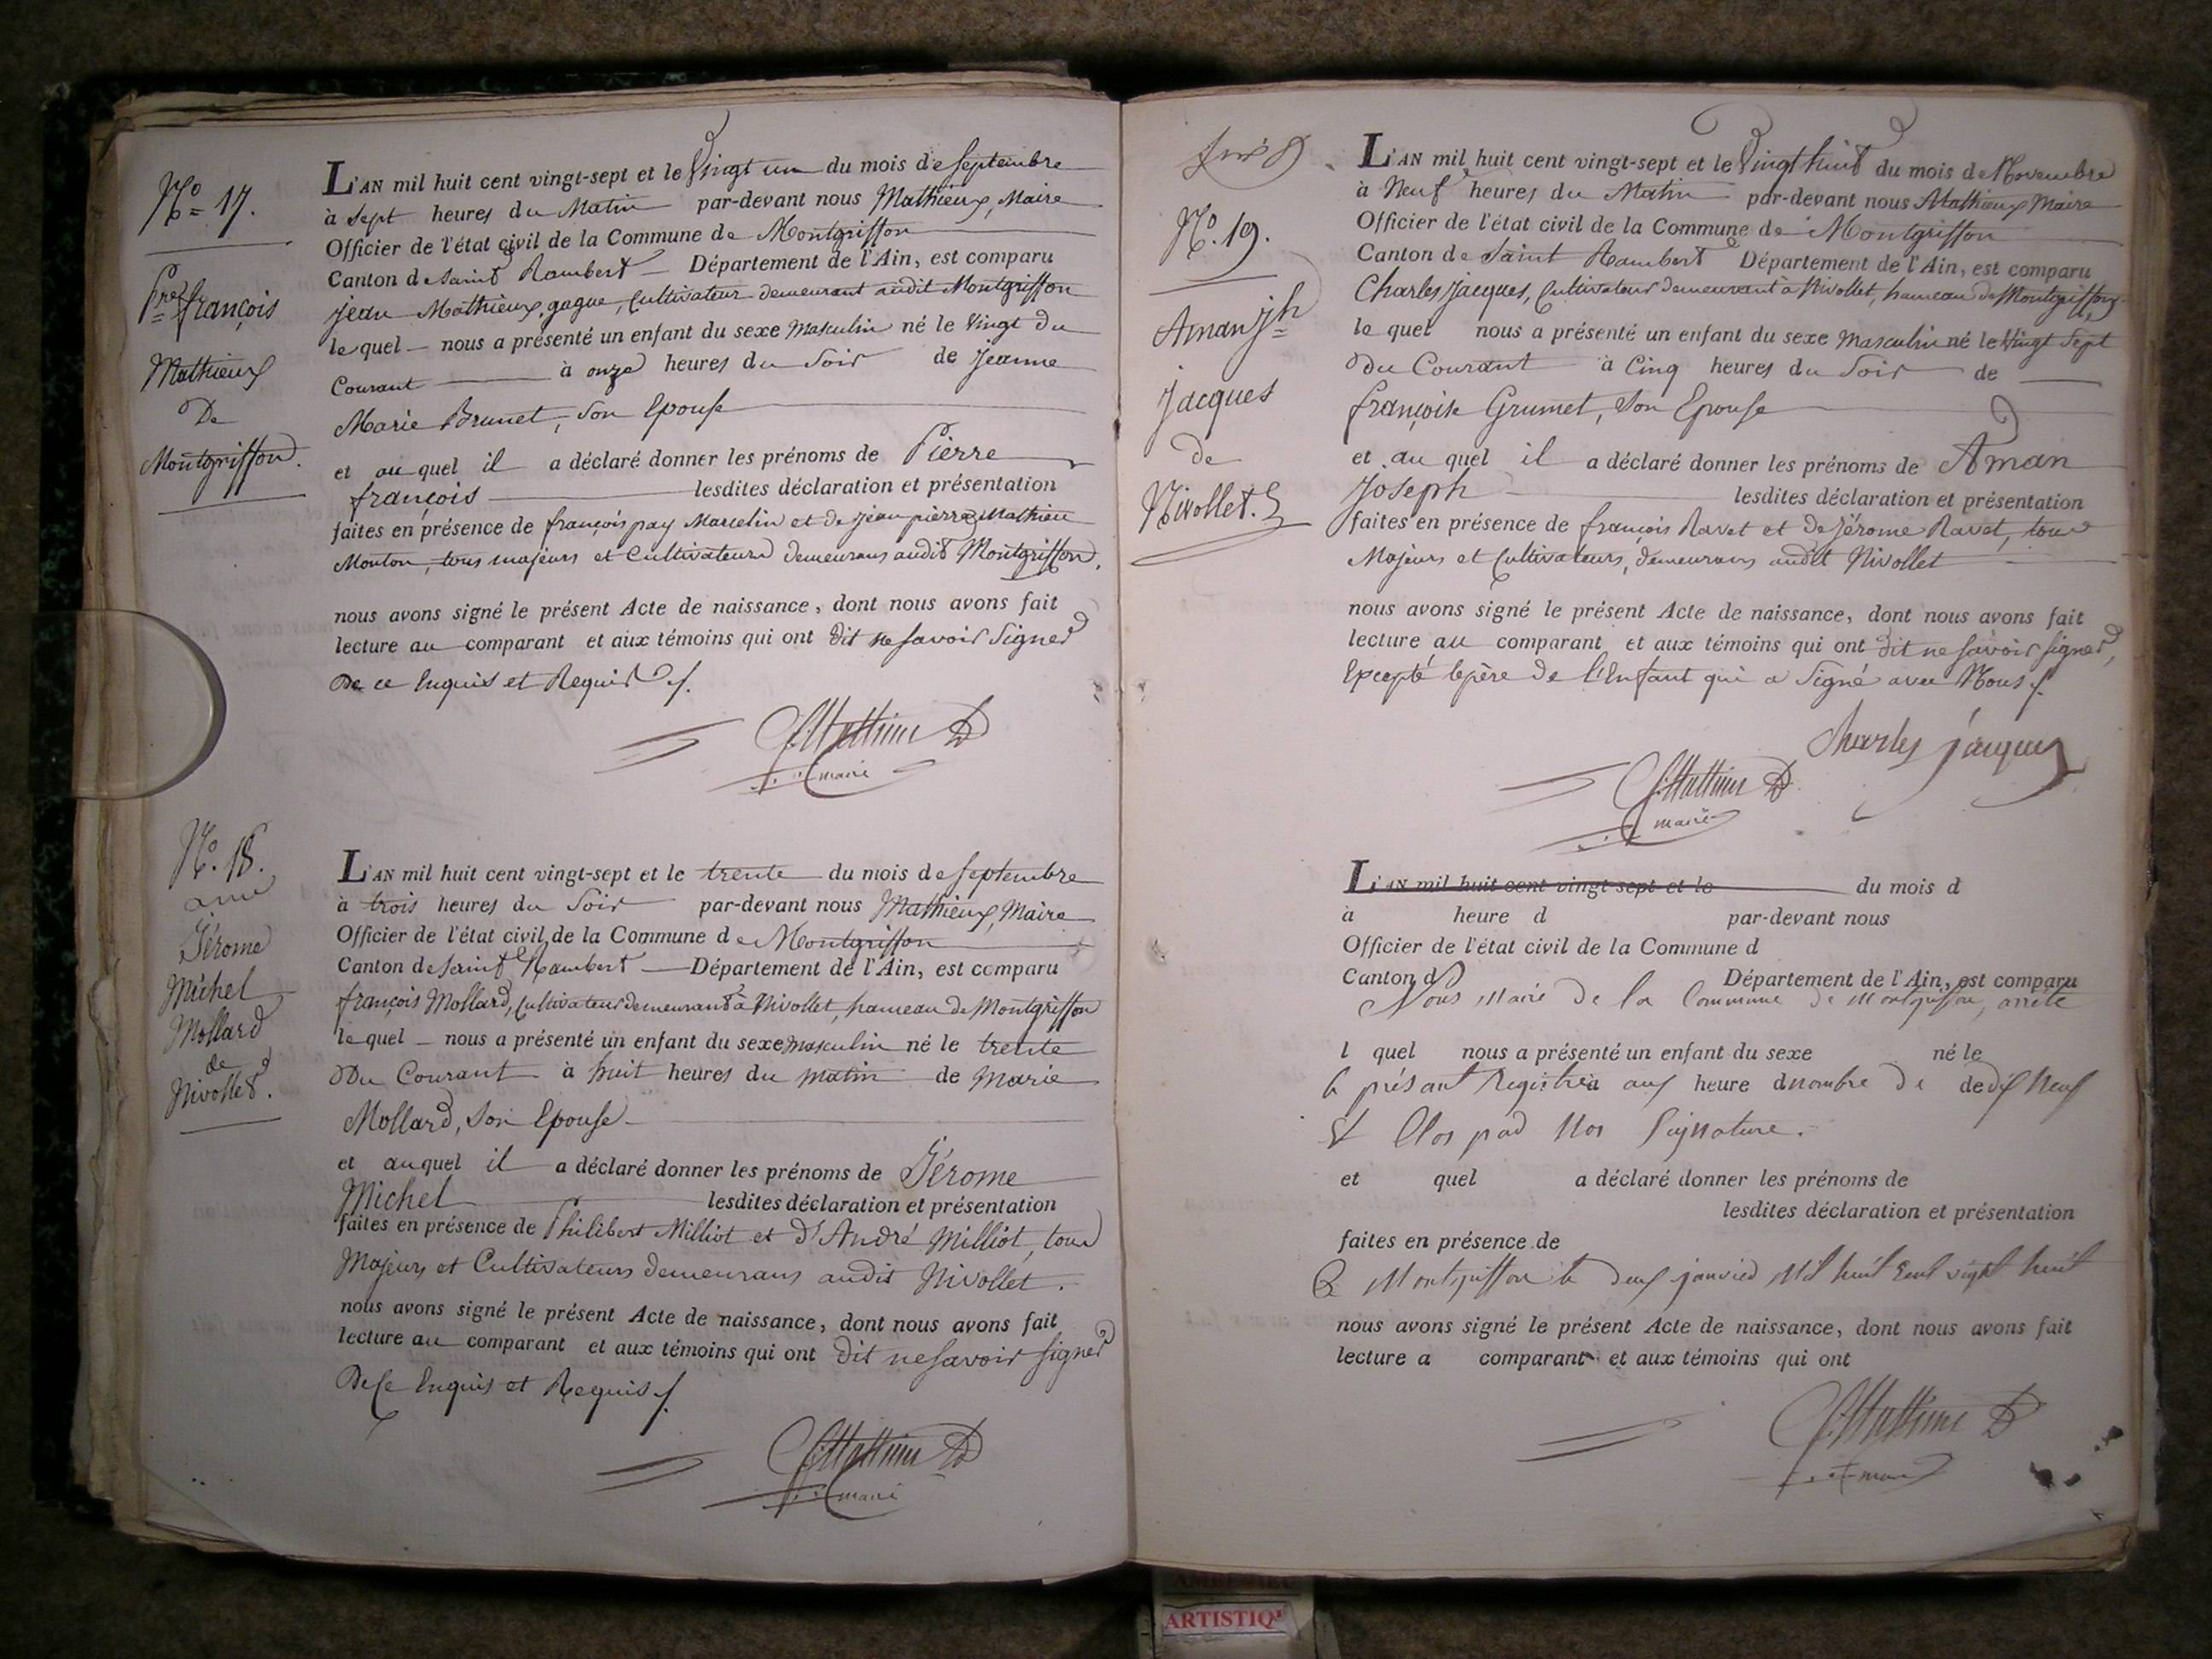 N.º 17.
P.re françois
Mathieux
De
Montgriffon.
L'AN mil huit cent vingt-sept et le Vingt un du mois de Septembre
à Sept heures du Matin par-devant nous Mathieux, Maire
Officier de l'état civil de la Commune de Montgriffon
Canton de Saint Rambert Département de l'Ain, est comparu
jean Mathieux, gague, Cultivateur demeurant audit Montgriffon
le quel nous a présenté un enfant du sexe Masculin né le Vingt du
Courant à onze heures du Soir de Jeanne
Marie Brunet, Son Epouse
et au quel il a déclaré donner les prénoms de Pierre
françois lesdites déclaration et présentation
faites en présence de françois pay Marcelin et de jean pierre Mathieu
Monton, tous majeurs et Cultivateurs demeurans audit Montgriffon.
nous avons signé le présent Acte de naissance, dont nous avons fait
lecture au comparant et aux témoins qui ont dit ne Savoir Signer
De ce Enquis et Requis ./.
Mathieux
maire
N.º 18.
Jérome
Michel
Mollard
de
Nivollet.
L'AN mil huit cent vingt-sept et le trente du mois de Septembre
à trois heures du Soir par-devant nous Mathieux, Maire
Officier de l'état civil de la Commune de Montgriffon
Canton de Saint Rambert Département de l'Ain, est comparu
françois Mollard, Cultivateur demeurant à Nivollet, hameau de Montgriffon
le quel nous a présenté un enfant du sexe masculin né le trente
Du Courant à huit heures du matin de Marie
Mollard, Son Epouse
et au quel il a déclaré donner les prénoms de Jérome
Michel lesdites déclaration et présentation
faites en présence de Philibert Milliot et d'André Milliot, tous
Majeurs et Cultivateurs demeurans audit Nivollet.
nous avons signé le présent Acte de naissance, dont nous avons fait
lecture au comparant et aux témoins qui ont dit ne Savoir Signer
De Ce Enquis et Requis ./.
Mathieux
maire
N.º 19.
Aman jh
jacques
de
Nivollet.
L'AN mil huit cent vingt-sept et le Vingt huit du mois de Novembre
à Neuf heures du Matin par-devant nous Mathieux Maire
Officier de l'état civil de la Commune de Montgriffon
Canton de Saint Rambert Département de l'Ain, est comparu
Charles jacques, Cultivateur demeurant à Nivollet, hameau de Montgriffon,
le quel nous a présenté un enfant du sexe Masculin né le Vingt Sept
Du Courant à Cinq heures du Soir de
françoise Grumet, Son Epouse
et au quel il a déclaré donner les prénoms de Aman
Joseph lesdites déclaration et présentation
faites en présence de françois Ravet et de Jérome Ravet, tous
Majeurs et Cultivateurs, demeurans audit Nivollet
nous avons signé le présent Acte de naissance, dont nous avons fait
lecture au comparant et aux témoins qui ont dit ne Savoir Signer,
Excepté le père de l'Enfant qui a Signé avec Nous ./.
Charles jacques
Mathieux
maire
L'AN mil huit cent vingt-sept et le du mois d
à heure d par-devant nous
Officier de l'état civil de la Commune d
Canton d Département de l'Ain, est comparu
Nous Maire de la Commune de Montgriffon, arrête
l quel nous a présenté un enfant du sexe né le
le présant Registre à aux heure d nombre de de dix Neuf
Et Clos par Nos Signature.
et quel a déclaré donner les prénoms de
lesdites déclaration et présentation
faites en présence de
à Montgriffon le deux janvier Mil huit Cent vight huit
nous avons signé le présent Acte de naissance, dont nous avons fait
lecture a comparant et aux témoins qui ont
Mathieux
maire
ARTISTIQ